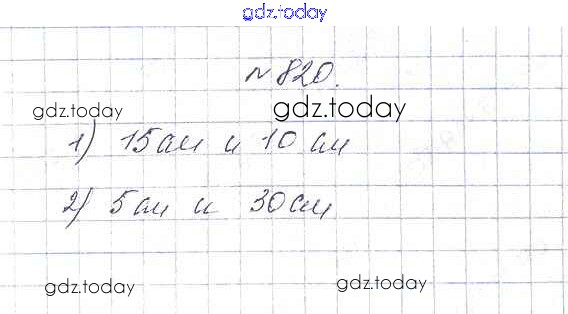 gdz.today
№820.
gdz.today
gdz.today
1) 15 см и 10 см
2) 5 см и 30 см
gdz.today
gdz.today